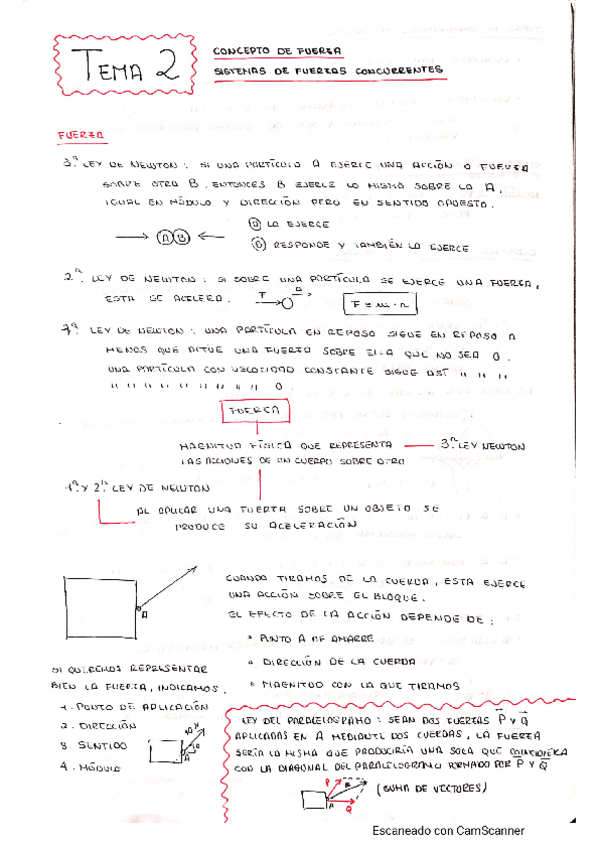 TEMA 2
CONCEPTO DE FUERZA
SISTEMAS DE FUERZAS CONCURRENTES
FUERZA
3.ª LEY DE NEWTON: SI UNA PARTÍCULA A EJERCE UNA ACCIÓN O FUERZA
SOBRE OTRA B, ENTONCES B EJERCE LO MISMO SOBRE LA A,
IGUAL EN MÓDULO Y DIRECCIÓN PERO EN SENTIDO OPUESTO.
A B
A LO EJERCE
B RESPONDE Y TAMBIÉN LO EJERCE
2.ª LEY DE NEWTON: SI SOBRE UNA PARTÍCULA SE EJERCE UNA FUERZA,
ESTA SE ACELERA. F a F = m · a
1ª LEY DE NEWTON: UNA PARTÍCULA EN REPOSO SIGUE EN REPOSO A
MENOS QUE ACTUE UNA FUERZA SOBRE ELLA QUE NO SEA 0.
UNA PARTÍCULA CON VELOCIDAD CONSTANTE SIGUE ASÍ " " "
" " " " " " " " " " 0.
FUERZA
MAGNITUD FÍSICA QUE REPRESENTA 3.ª LEY NEWTON
LAS ACCIONES DE UN CUERPO SOBRE OTRO
1ª Y 2ª LEY DE NEWTON
AL APLICAR UNA FUERZA SOBRE UN OBJETO SE
PRODUCE SU ACELERACIÓN
A
CUANDO TIRAMOS DE LA CUERDA, ESTA EJERCE
UNA ACCIÓN SOBRE EL BLOQUE.
EL EFECTO DE LA ACCIÓN DEPENDE DE:
• PUNTO A DE AMARRE
• DIRECCIÓN DE LA CUERDA
• MAGNITUD CON LA QUE TIRAMOS
SI QUEREMOS REPRESENTAR
BIEN LA FUERZA, INDICAMOS.
1. PUNTO DE APLICACIÓN
2. DIRECCIÓN
3. SENTIDO
4. MÓDULO
A
LEY DEL PARALELOGRAMO: SEAN DOS FUERZAS P Y Q
APLICADAS EN A MEDIANTE DOS CUERDAS, LA FUERZA
SERÍA LA MISMA QUE PRODUCIRÍA UNA SOLA QUE
CON LA DIAGONAL DEL PARALELOGRAMO FORMADO POR P Y Q
P R A Q (SUMA DE VECTORES)
Escaneado con CamScanner